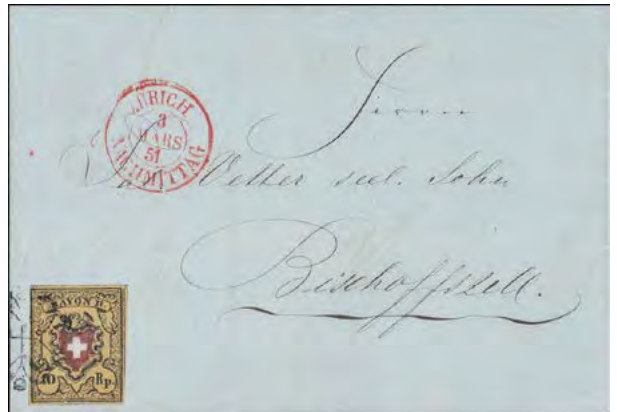 ZÜRICH
3
MARS
51
NACHMITTAG
Vetter seel. Sohn
Bischoffszell.
RAYON II.
10 Rp.